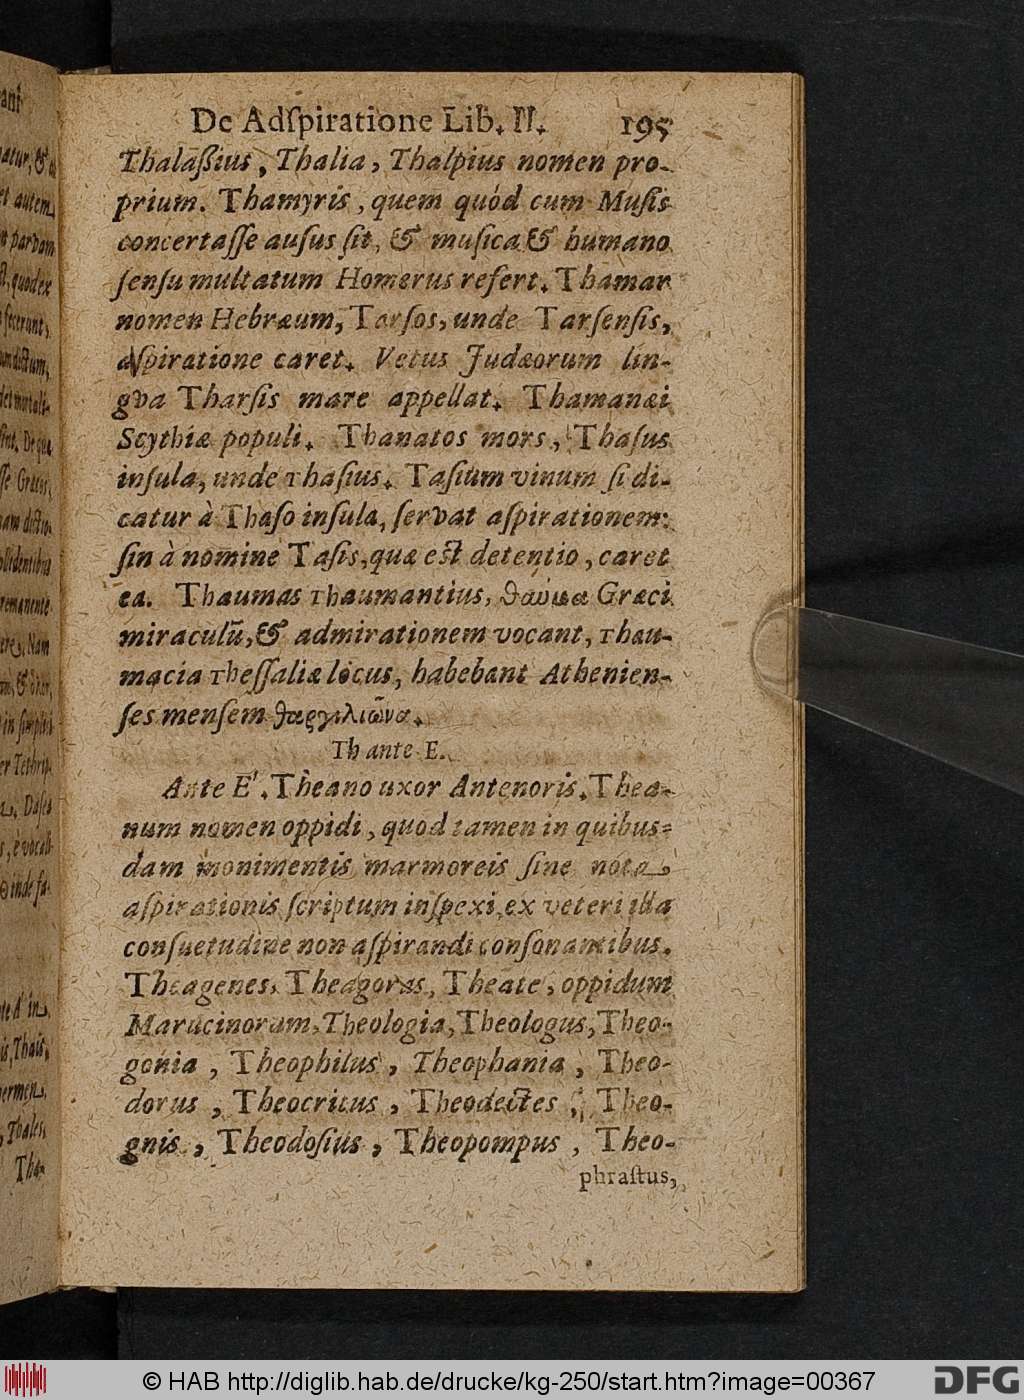 De Adſpiratione Lib. II. 195
Thalaßius, Thalia, Thalpius nomen pro-
prium. Thamyris, quem quód cum Muſis
concertaſſe auſus ſit, & muſica & humano
ſenſu multatum Homerus refert. Thamar
nomen Hebræum, Tarſos, unde Tarſenſis,
aſpiratione caret. Vetus Judæorum lin-
gva Tharſis mare appellat. Thamanæi
Scythiæ populi. Thanatos mors, Thaſus
inſula, unde Thaſius. Taſium vinum ſi di-
catur à Thaſo inſula, ſervat aſpirationem:
ſin à nomine Taſis, quæ eſt detentio, caret
ea. Thaumas Thaumantius, θαύμα Græci
miraculũ, & admirationem vocant, Thau-
macia Theſſaliæ locus, habebant Athenien-
ſes menſem θαργιλιῶνα.
Th ante E.
Ante E'. Theano uxor Antenoris. Thea-
num nomen oppidi, quod tamen in quibus-
dam monimentis marmoreis ſine nota
aſpirationis ſcriptum inſpexi, ex veteri illa
conſuetudine non aſpirandi conſonantibus.
Theagenes, Theagoras, Theate, oppidum
Marucinorum, Theologia, Theologus, Theo-
gonia, Theophilus, Theophania, Theo-
dorus, Theocritus, Theodectes, Theo-
gnis, Theodoſius, Theopompus, Theo-
phraſtus,
© HAB http://diglib.hab.de/drucke/kg-250/start.htm?image=00367
DFG